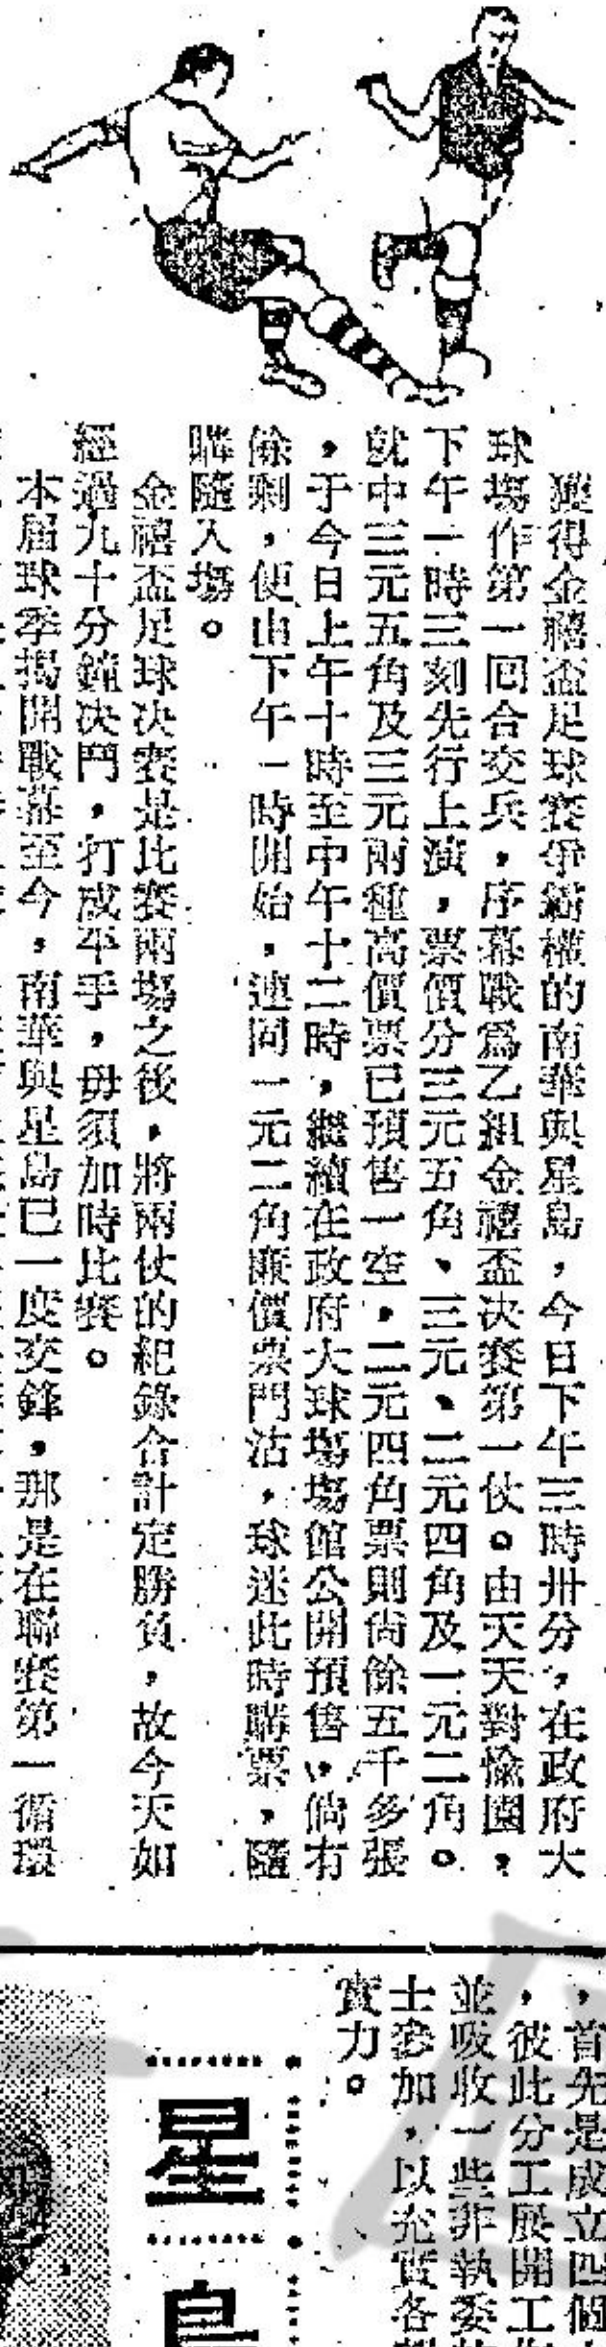 獲得金禧盃足球賽爭錦權的南華與星島，今日下午三時卅分，在政府大
球塲作第一回合交兵，序幕戰爲乙組金禧盃决賽第一仗。由天天對愉園，
下午一時三刻先行上演，票價分三元五角、三元、二元四角及一元二角。
就中三元五角及三元兩種高價票已預售一空，二元四角票則尙餘五千多張
，于今日上午十時至中午十二時，繼續在政府大球塲塲館公開預售，倘有
餘剩，便由下午一時開始，連同一元二角廉價票門沽，球迷此時購票，隨
購隨入塲。
金禧盃足球决賽是比賽兩塲之後，將兩仗的紀錄合計定勝負，故今天如
經過九十分鐘决鬥，打成平手，毋須加時比賽。
本屆球季揭開戰幕至今，南華與星島已一度交鋒，那是在聯賽第一循環
，首先是成立四個
，彼此分工展開工
並吸收一些非執委
士參加，以充實各
實力。
星島